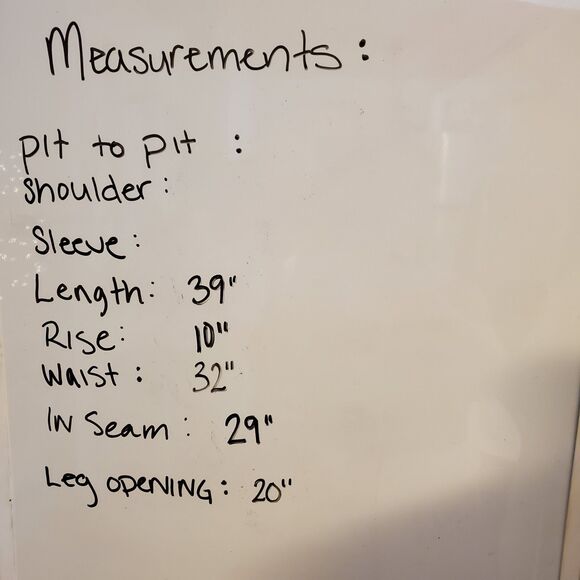 Measurements :
pit to pit :
shoulder :
Sleeve :
Length : 39"
Rise : 10"
waist : 32"
In Seam : 29"
Leg opening : 20"